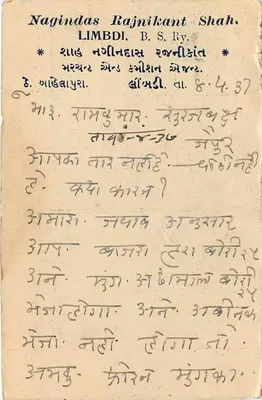 Nagindas Rajnikant Shah.
LIMBDI, B. S. Ry.
* શાહ નગીનદાસ રજનીકાંત *
મરચન્ટ એન્ડ કમીશન એજન્ટ.
ઠે. બાહેલાપુરા. લીંબડી. તા. 8.4.37
भाइ. रामकुमार. सुरजबक्ष
जैपुर
आपका तार नहीं है. नहीं
है. क्या कारन?
अमारा. जवाब अनुसार
आप. बाजरा हरा बोरी २५
अने. मुंग. बोरी
२५
भेजा होगा. अने अबी तक
भेजा. नहीं होगा तो.
फोरन मुंग का.